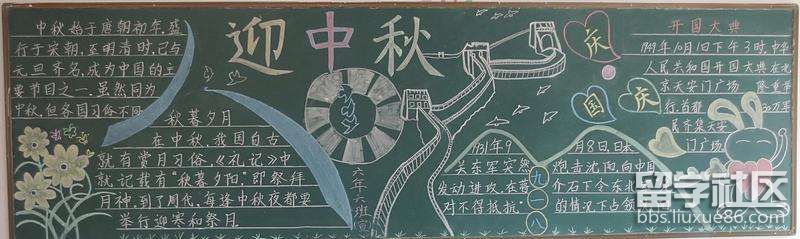 迎中秋
中秋始于唐朝初年,盛
行于宋朝,至明清时,已与
元旦齐名,成为中国的主
要节日之一。虽然同为
中秋,但各国习俗不同
秋暮夕月
在中秋,我国自古
就有赏月习俗,《礼记》中
就记载有“秋暮夕阳”,即祭拜
月神,到了周代,每逢中秋夜都要
举行迎寒和祭月
六年六班
1931年9月8日,日本
关东军突然炮击沈阳,向中国
发动进攻,在蒋介石下令东北
对不得抵抗”的情况下占领
九一八
庆
国
庆
开国大典
1949年10月1日下午3时,中华
人民共和国开国大典在北
京天安门广场隆重举
行,首都30万军
民齐集天安
门广场
留学社区
bbs.liuxue86.com